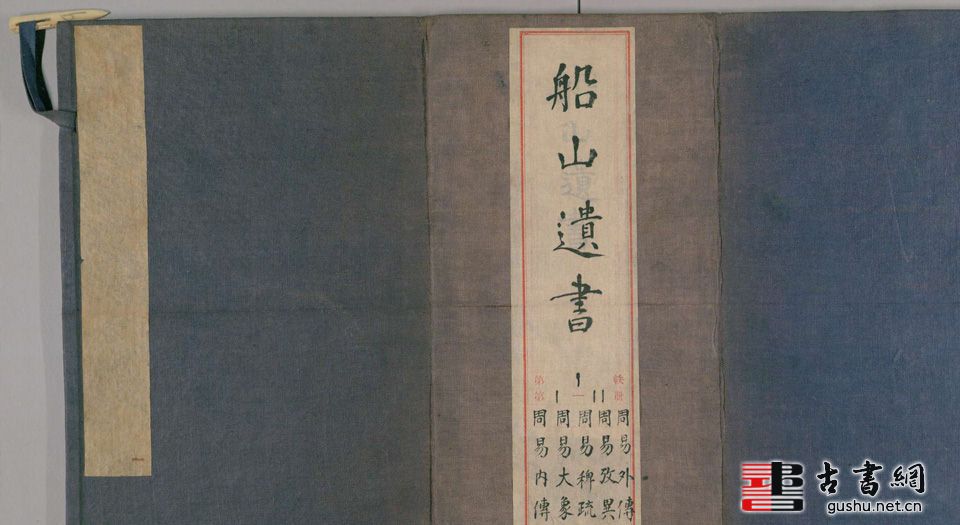 船山遺書
周易外傳
周易攷異
周易稗疏
周易大象
周易內傳
古書網
gushu.net.cn